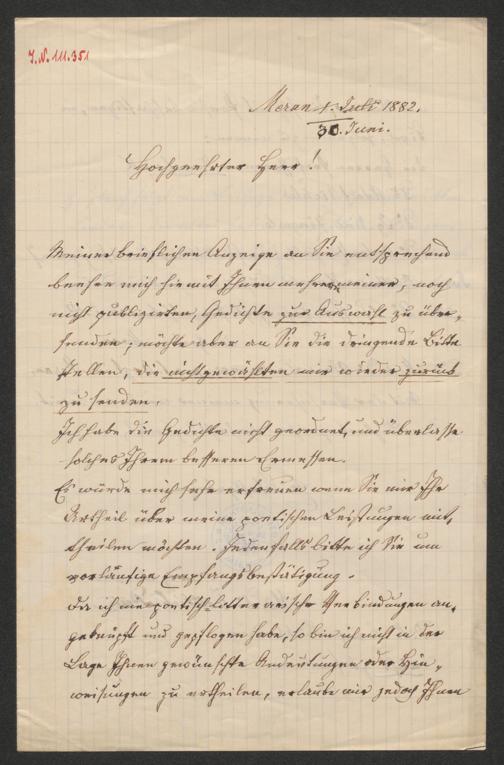 J. N. 111.351
Meran 1. Juli 1882.
30. Juni.
Hochgeehrter Herr!
Meiner brieflichen Anzeige an Sie entsprechend
beehre mich hiemit Ihnen mehrere meiner, noch
nicht publizirten, Gedichte zur Auswahl zu über-
senden; möchte aber an Sie die dringende Bitte
stellen, die nichtgewählten mir wieder zurück
zu senden.
Ich habe die Gedichte nicht geordnet, und überlasse
solches Ihrem besseren Ermessen.
Es würde mich sehr erfreuen wenn Sie mir Ihr
Urtheil über meine poetischen Leistungen mit-
theilen möchten. Jedenfalls bitte ich Sie um
vorläufige Empfangsbestätigung.
Da ich nie poetisch-litterarische Verbindungen an-
geknüpft und gepflogen habe, so bin ich nicht in der
Lage Ihnen gewünschte Andeutungen oder Hin-
weisungen zu ertheilen, erlaube mir jedoch Ihnen